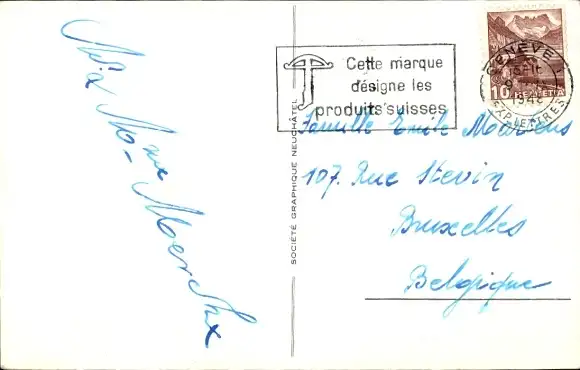 Mr Mme Moerckx
Cette marque
désigne les
produits suisses
GENÈVE
EXP. LETTRES
10
HELVETIA
Famille Emile Moartens
107. Rue Stevin
Bruxelles
Belgique
SOCIÉTÉ GRAPHIQUE NEUCHÂTEL